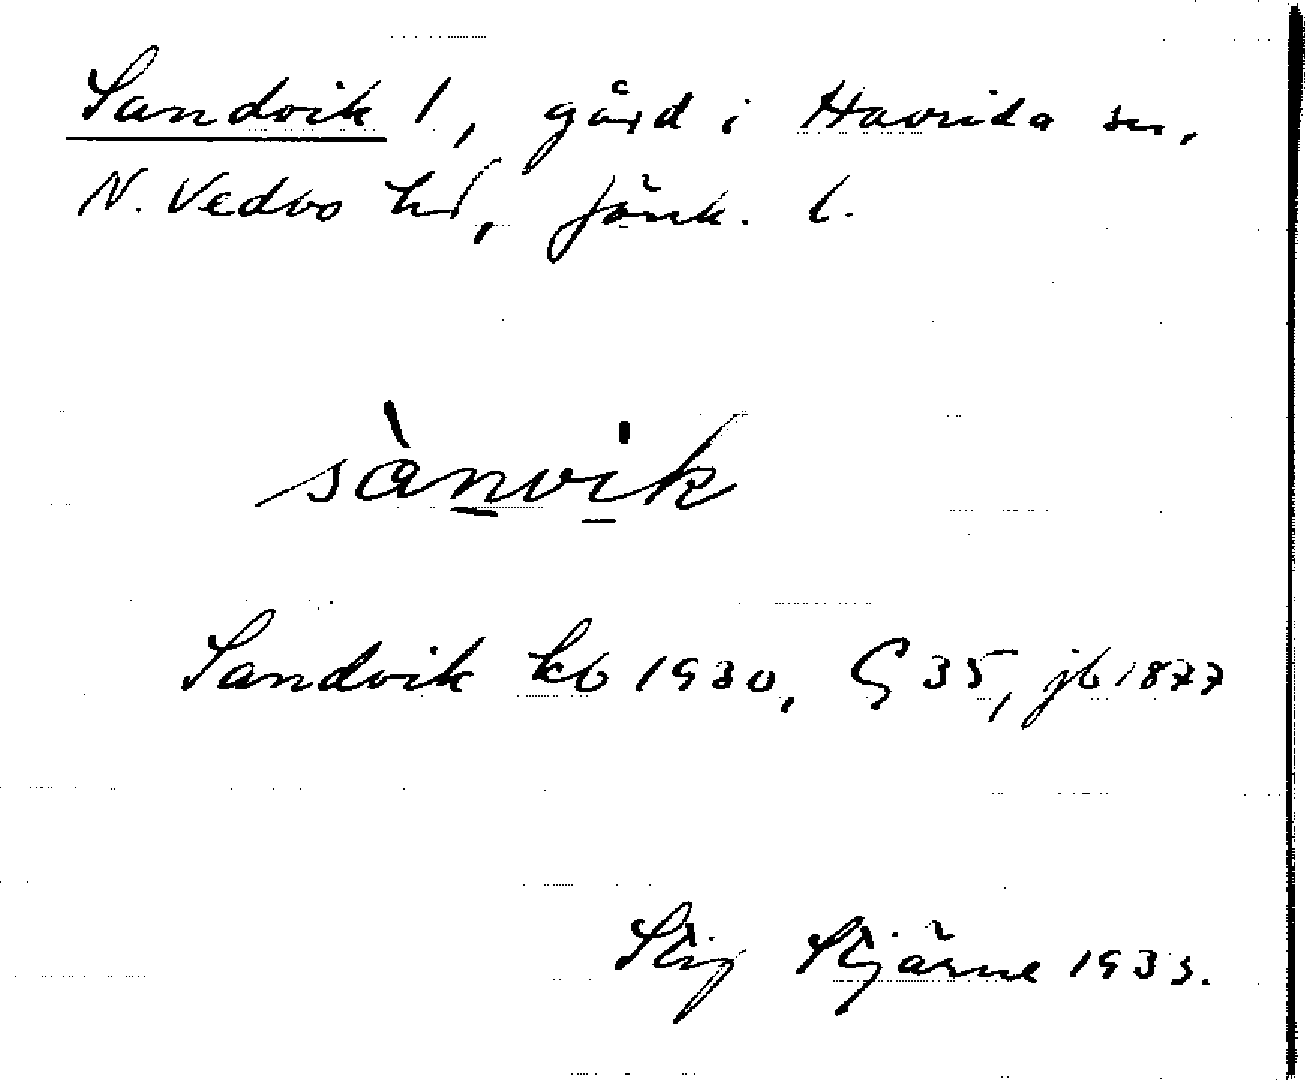 Sandvik 1, gård i Haurida sn,
N. Vedbo hd, Jönk. l.
sànvik
Sandvik kb 1930, G 35, jb 1877
Stig Stjärne 1933.